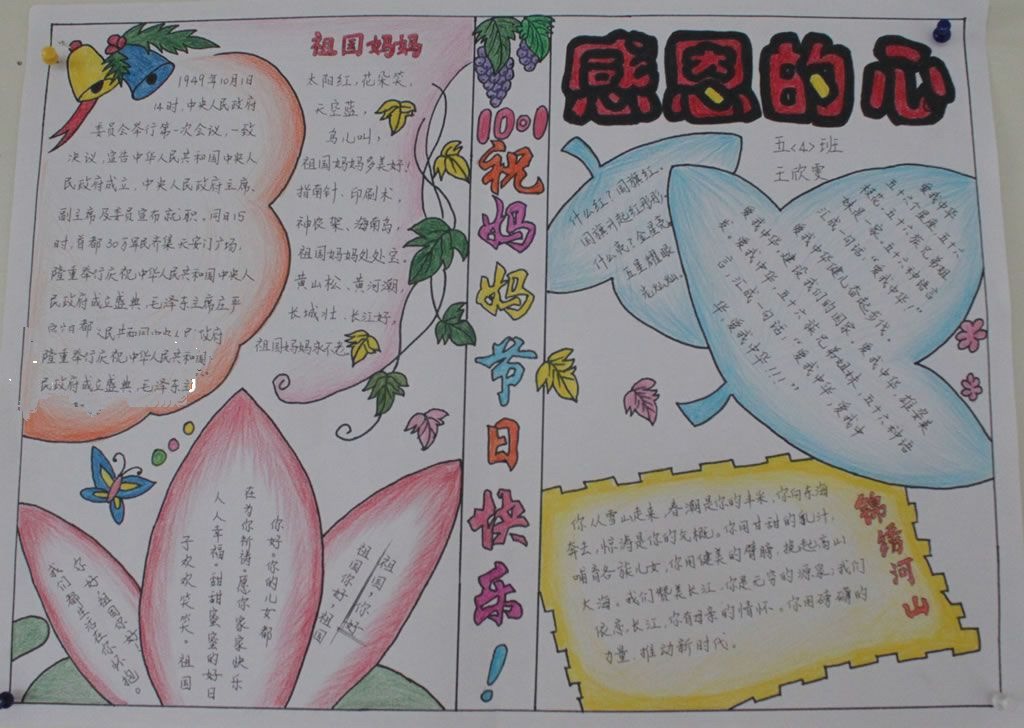 1949年10月1日
14时,中央人民政府
委员会举行第一次会议,一致
决议,宣告中华人民共和国中央人
民政府成立,中央人民政府主席、
副主席及委员宣布就职。同日15
时,首都30万军民齐集天安门广场,
隆重举行庆祝中华人民共和国中央人
民政府成立盛典,毛泽东主席庄严
隆重举行庆祝中华人民共和国
民政府成立盛典,毛泽东主
祖国妈妈
太阳红,花朵笑,
天空蓝,
鸟儿叫,
祖国妈妈多美好!
指南针、印刷术,
神农架、海南岛,
祖国妈妈处处宝。
黄山松、黄河潮,
长城壮、长江好。
祖国妈妈永不老。
你好祖国你好!
我们都生活在你怀抱。
你好。你的儿女都
在为你祈祷。愿你家家快乐
人人幸福。甜甜蜜蜜的好日
子欢欢笑笑。祖国
祖国,你好
祖国你好,祖国
10·1
祝妈妈节日快乐!
感恩的心
五<4>班
王欣雯
什么红?国旗红、
国旗升起红彤彤。
什么亮?金星亮,
五星耀眼
亮灿灿。
爱我中华
五十六个星座五十六
枝花,五十六族兄弟姐
妹是一家,五十六种语言
汇成一句话"爱我中华"
爱我中华健儿奋起步伐。
爱我中华建设我们的国家,爱我中华,雄姿英
发。爱我中华,五十六族兄弟姐妹,五十六种语
言,汇成一句话:"爱我中华,爱我中
华,爱我中华!!!"
锦绣河山
你从雪山走来,春潮是你的丰采,你向东海
奔去,惊涛是你的气概。你用甘甜的乳汁,
哺育各族儿女,你用健美的臂膀,挽起高山
大海。我们赞美长江,你是无穷的源泉;我们
依恋长江,你有母亲的情怀。你用磅礴的
力量,推动新时代。